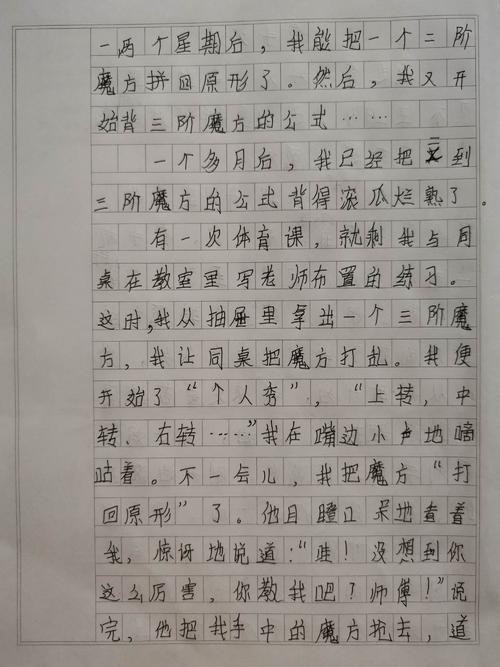 一两个星期后，我能把一个二阶
魔方拼回原形了。然后，我又开
始背三阶魔方的公式……
一个多月后，我已经把二到
三阶魔方的公式背得滚瓜烂熟了。
有一次体育课，就剩我与同
桌在教室里写老师布置的练习。
这时，我从抽屉里拿出一个三阶魔
方，我让同桌把魔方打乱。我便
开始了“个人秀”，“上转，中
转、右转……”我在嘴边小声地嘀
咕着。不一会儿，我把魔方“打
回原形”了。他目瞪口呆地看着
我，惊讶地说道：“哇！没想到你
这么厉害，你教我吧？师傅！”说
完，他把我手中的魔方抢去，道